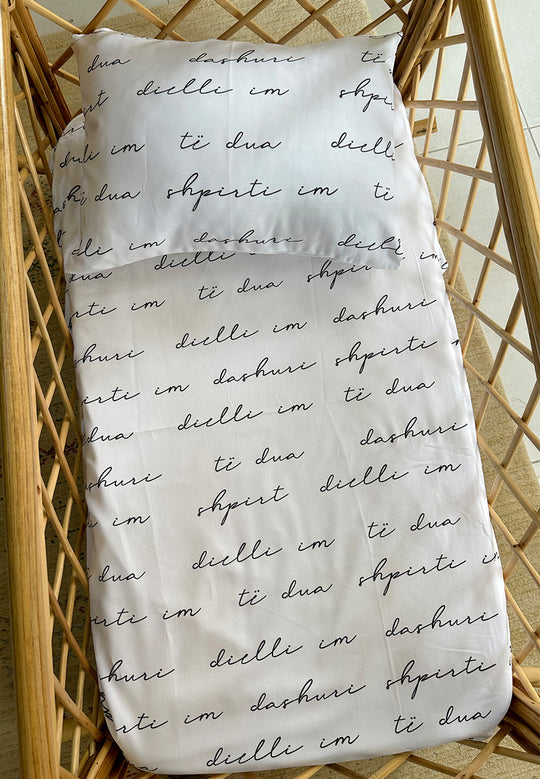 dua dashuri të
dielli im shpi
im të dua dielli
dua shpirti im të
im dashuri dielli
dielli im shpirti
rti im të dua im
huri dielli im dashuri
irti im dashuri shpirti
dua dielli im të dua
shuri të dua dashuri
im shpirt dielli im
dua dielli im të dua
irti im të dua shpirti im
huri dielli im dashuri
rti im dashuri shpirti
dielli im të dua